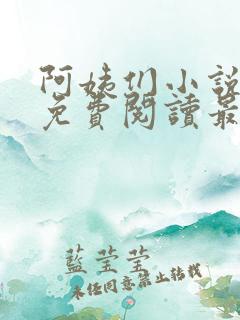 阿姨们小說
免費閱讀最
藍莹莹
未经同意禁止转载